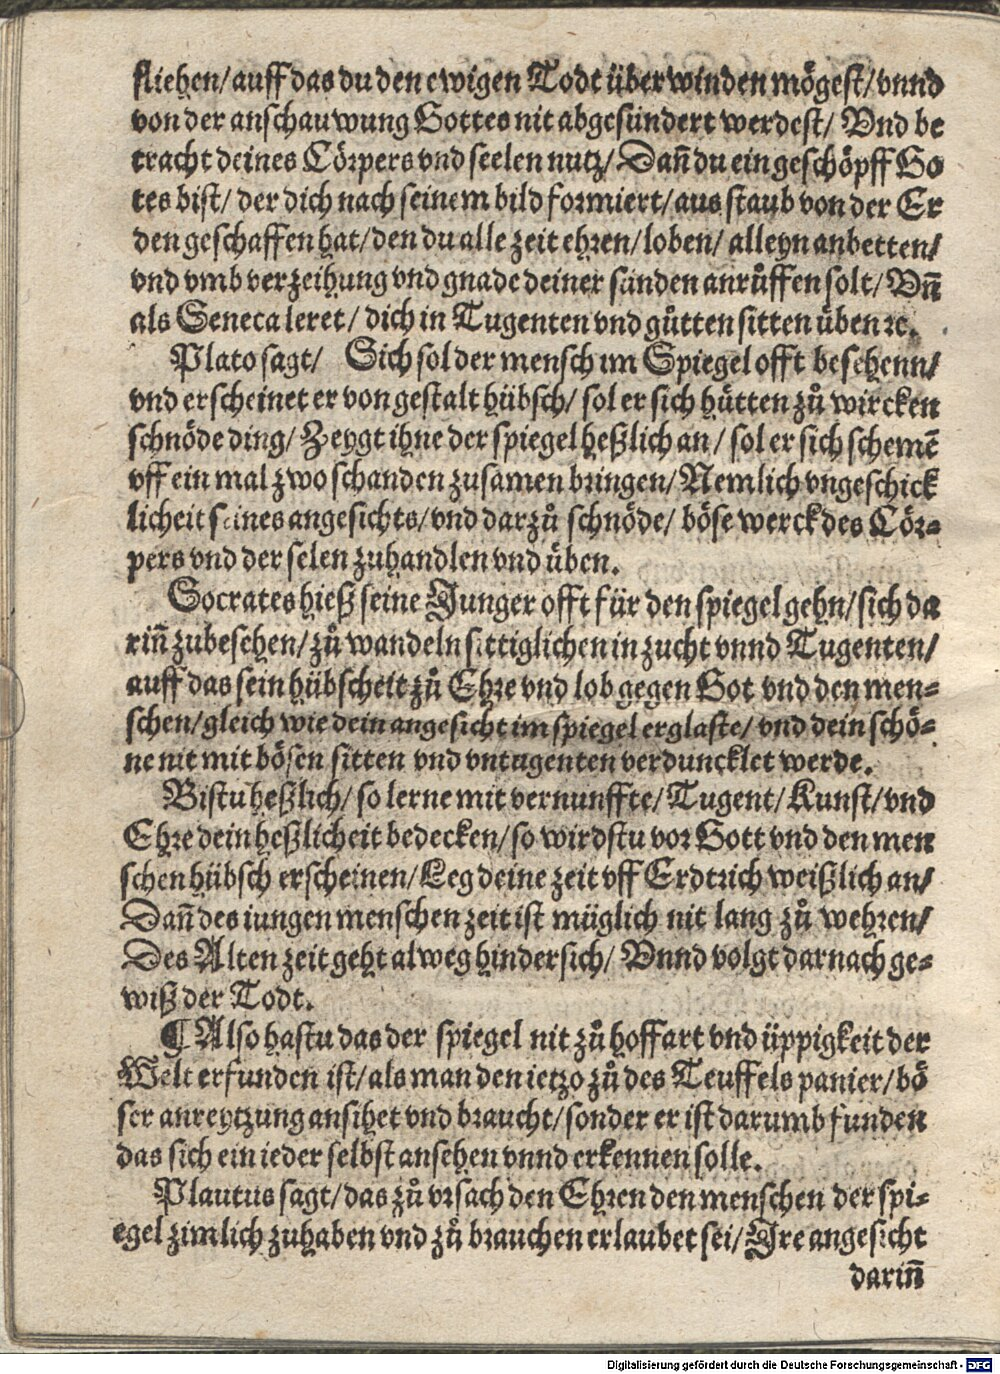 fliehen/ auff das du den ewigen Todt überwinden mögest/ vnnd
von der anschauwung Gottes nit abgesündert werdest/ Vnd be
tracht deines Cörpers vnd seelen nutz/ Dañ du ein geschöpff Go
tes bist/ der dich nach seinem bild formiert/ aus staub von der Er
den geschaffen hat/ den du alle zeit ehren/ loben/ alleyn anbetten/
vnd vmb verzeihung vnd gnade deiner sünden anrůffen solt/ Vñ
als Seneca leret/ dich in Tugenten vnd gůtten sitten üben ꝛc.
Plato sagt/ Sich sol der mensch im Spiegel offt besehenn/
vnd erscheinet er von gestalt hübsch/ sol er sich hütten zů wircken
schnöde ding/ Zeygt ihne der spiegel heßlich an/ sol er sich schemē
vff ein mal zwo schanden zusamen bringen/ Nemlich vngeschick
licheit seines angesichts/ vnd darzů schnöde/ böse werck des Cör⸗
pers vnd der selen zuhandlen vnd üben.
Socrates hieß seine Junger offt für den spiegel gehn/ sich da
riñ zubesehen/ zů wandeln sittiglichen in zucht vnnd Tugenten/
auff das sein hübscheit zů Ehre vnd lob gegen Got vnd den men⸗
schen/ gleich wie dein angesicht im spiegel erglaste/ vnd dein schö⸗
ne nit mit bösen sitten vnd vntugenten verduncklet werde.
Bistu heßlich/ so lerne mit vernunffte/ Tugent/ Kunst/ vnd
Ehre dein heßlicheit bedecken/ so wirdstu vor Gott vnd den men
schen hübsch erscheinen/ Leg deine zeit vff Erdtrich weißlich an/
Dañ des iungen menschen zeit ist müglich nit lang zů wehren/
Des Alten zeit geht alweg hindersich/ Vnnd volgt darnach ge⸗
wiß der Todt.
¶ Also hastu das der spiegel nit zů hoffart vnd üppigkeit der
Welt erfunden ist/ als man den ietzo zů des Teuffels panier/ bö
ser anreytzung ansihet vnd braucht/ sonder er ist darumb funden
das sich ein ieder selbst ansehen vnnd erkennen solle.
Plautus sagt/ das zů vrsach den Ehren den menschen der spi⸗
egel zimlich zuhaben vnd zů brauchen erlaubet sei/ Jre angesicht
dariñ
Digitalisierung gefördert durch die Deutsche Forschungsgemeinschaft - DFG